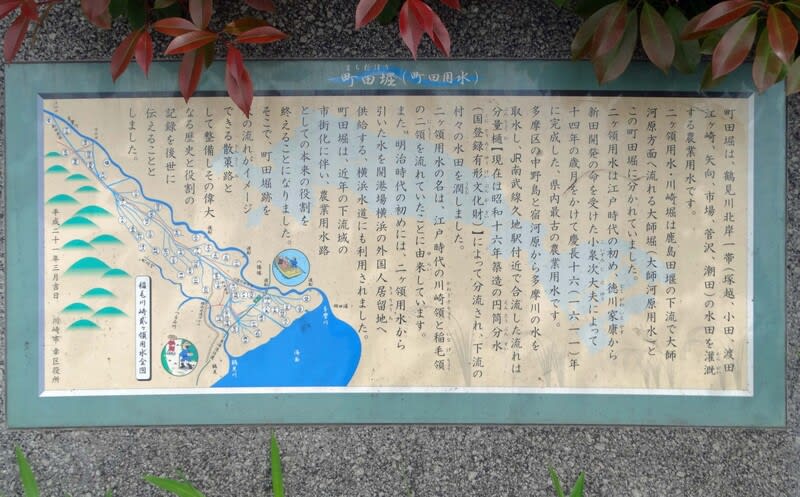 町田堀(町田用水)
まちだぼり
町田堀は、鶴見川北岸一帯(塚越、小田、渡田
江ヶ崎、矢向、市場、菅沢、潮田)の水田を灌漑
する農業用水です。
二ヶ領用水・川崎堀は鹿島田堰の下流で大師
河原方面へ流れる大師堀(大師河原用水)と
この町田堀に分かれていました。
二ヶ領用水は江戸時代の初め、徳川家康から
新田開発の命を受けた小泉次大夫によって
十四年の歳月をかけて慶長十六(一六一一)年
に完成した、県内最古の農業用水です。
多摩区の中野島と宿河原から多摩川の水を
取水し、JR南武線久地駅付近で合流した流れは
分量樋【現在は昭和十六年築造の円筒分水
(国登録有形文化財)】によって分流され、下流の
村々の水田を潤しました。
二ヶ領用水の名は、江戸時代の川崎領と稲毛領
の二領を流れていたことに由来しています。
また、明治時代の初めには、二ヶ領用水から
引いた水を開港場横浜の外国人居留地へ
供給する、横浜水道にも利用されました。
町田堀は、近年の下流域の
市街化に伴い、農業用水路
としての本来の役割を
終えることになりました。
そこで、町田堀跡を
水の流れがイメージ
できる散策路と
して整備しその偉大
なる歴史と役割の
記録を後世に
伝えることと
しました。
平成二十一年三月吉日 川崎市 幸区役所
稲毛川崎弐ヶ領用水全図
多摩川
海面
鶴見川
鶴見